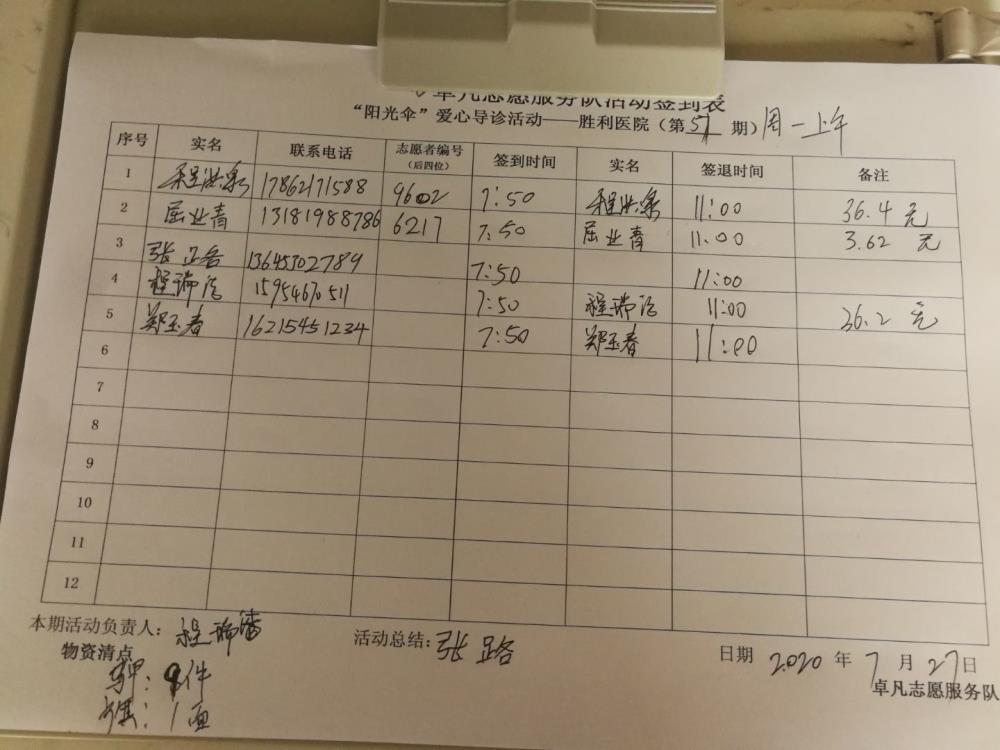 卓凡志愿服务队活动签到表
“阳光伞”爱心导诊活动——胜利医院（第51期）周一上午
序号 实名 联系电话 志愿者编号（后四位） 签到时间 实名 签退时间 备注
1 程洪泉 17862171588 9602 7:50 程洪泉 11:00 36.4 元
2 屈业青 13181988786 6217 7:50 屈业青 11:00 3.62 元
3 张 13645302789 7:50 11:00
4 程瑞 15954670511 7:50 程瑞 11:00 36.2 元
5 郑玉春 16215451234 7:50 郑玉春 11:00
6
7
8
9
10
11
12
本期活动负责人：程瑞 活动总结：张路 日期 2020 年 7 月 27 日
物资清点 卓凡志愿服务队
件
旗：1面